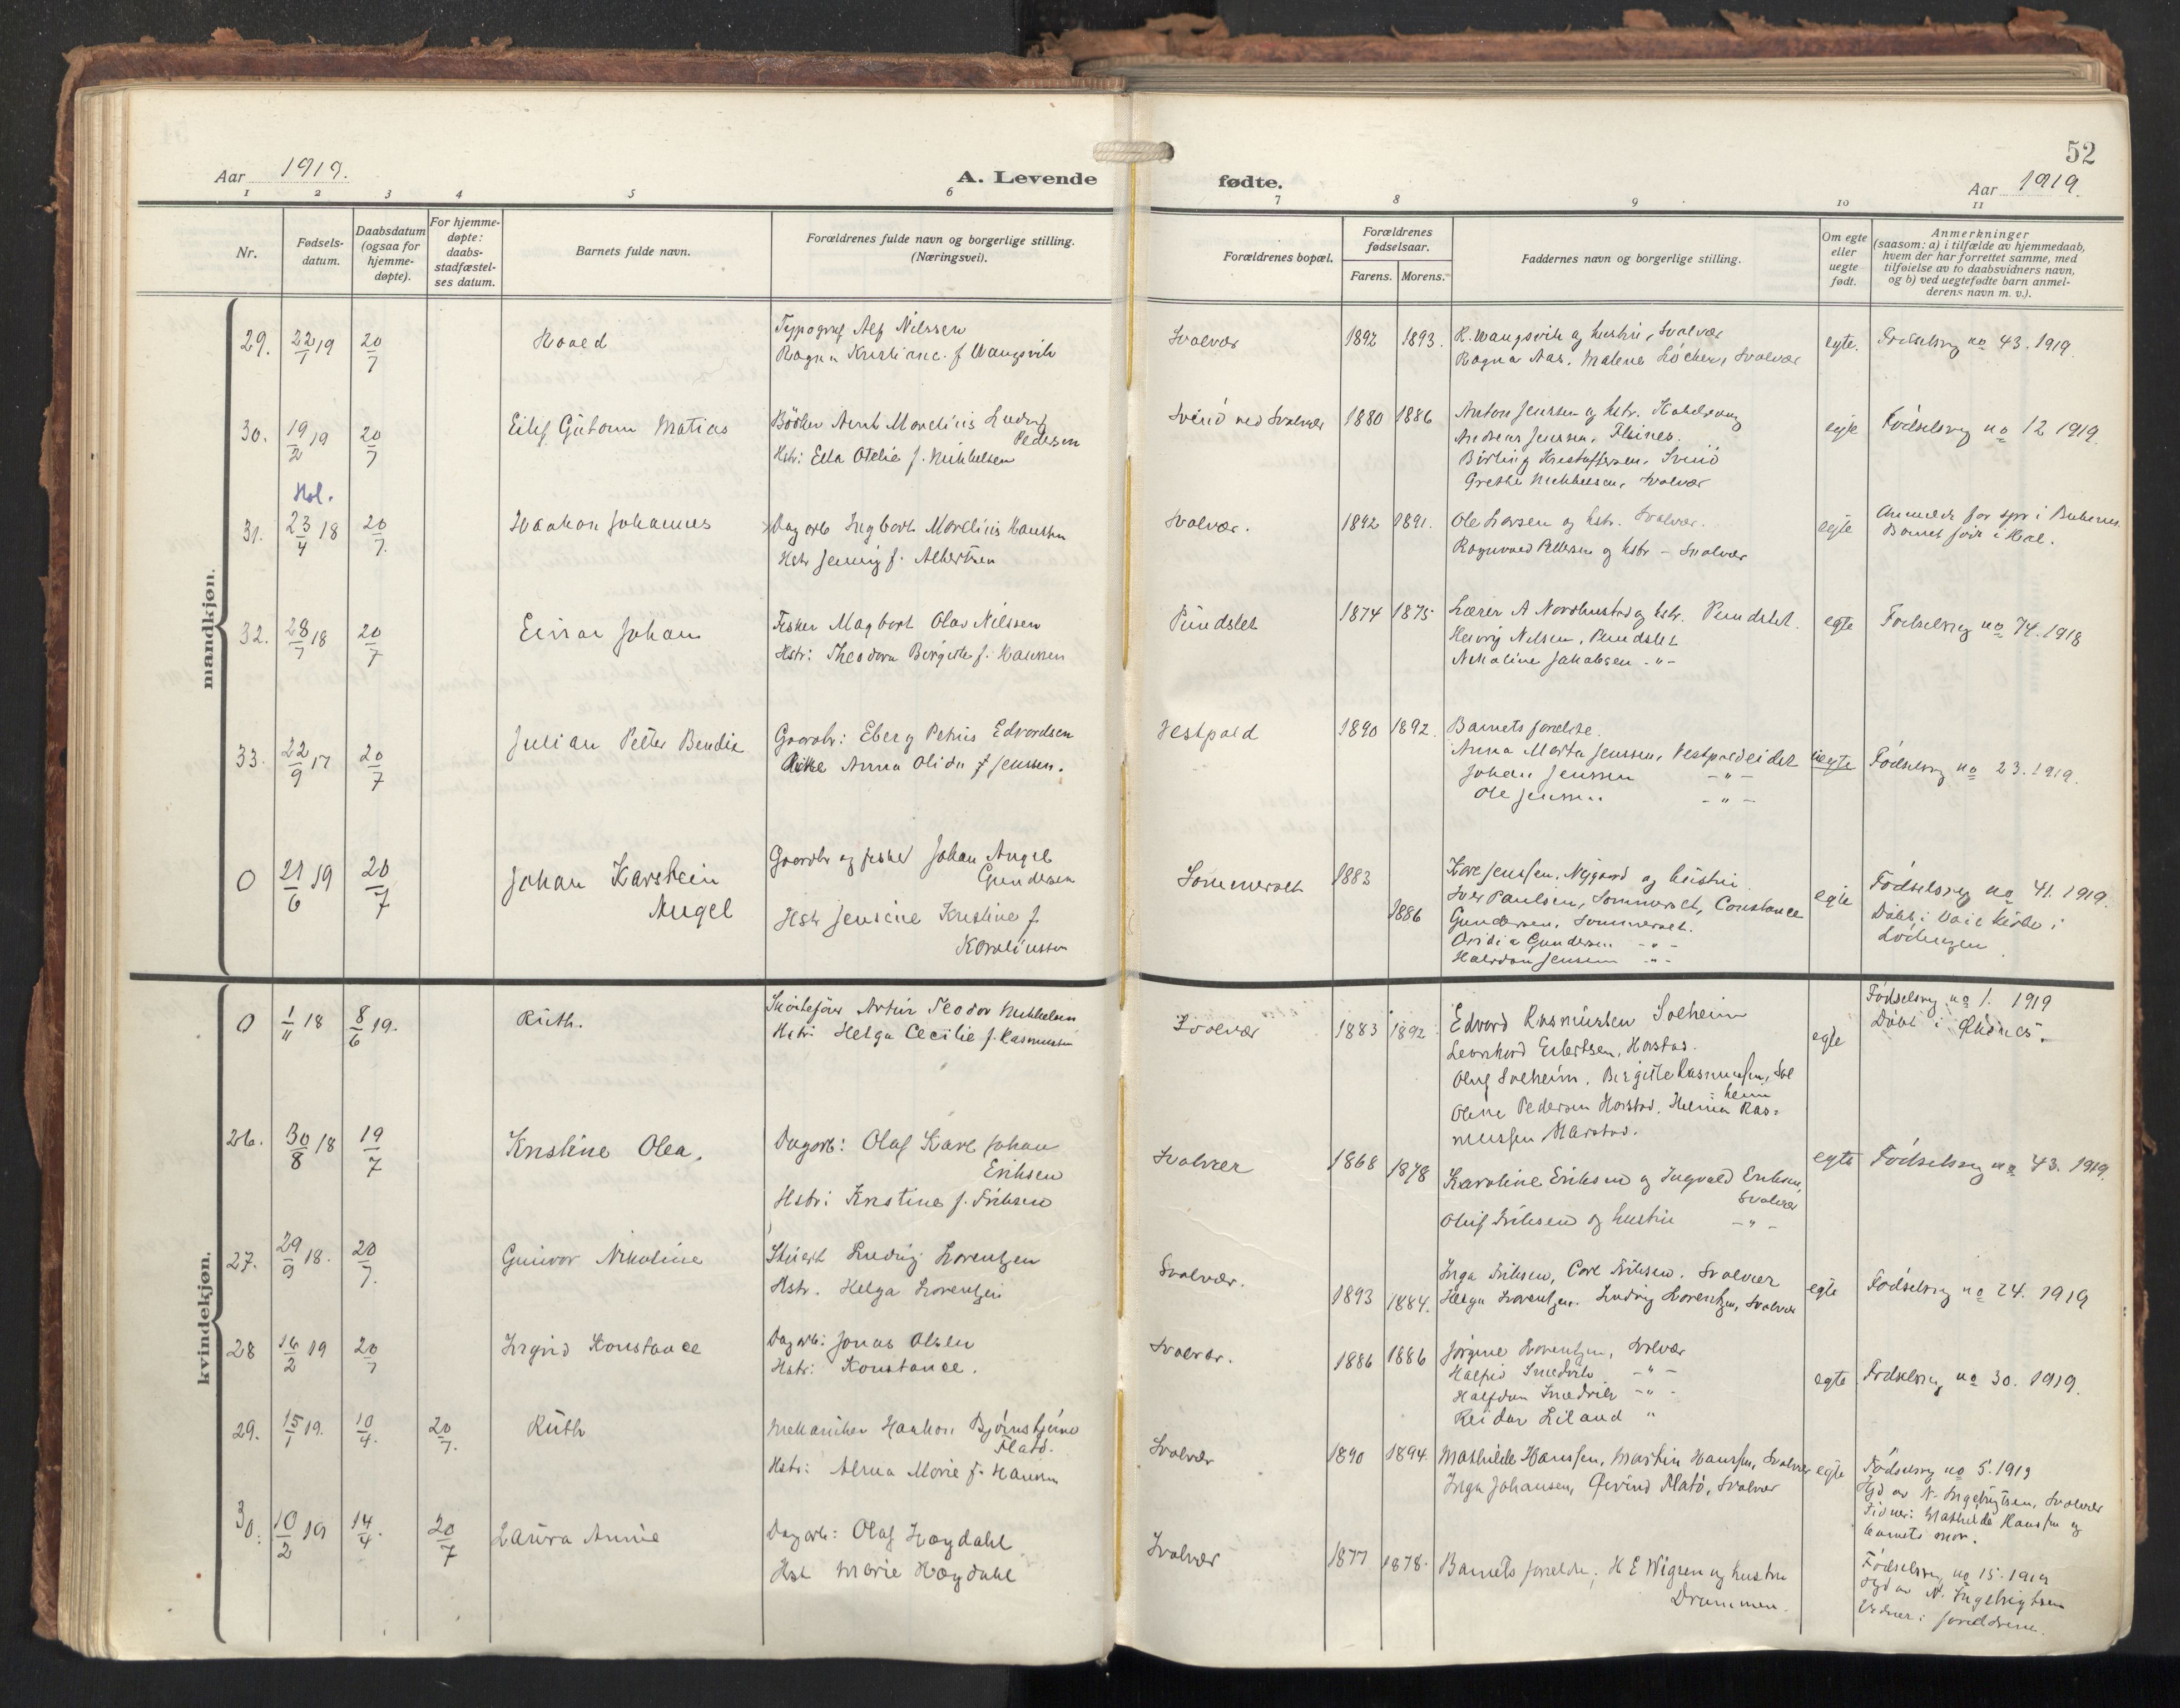 52
Aar 1919.
A. Levende fødte.
Aar 1919
1 2 3 4 5 6 7 8 9 10 11
Nr.
Fødsels-
datum.
Daabsdatum
(ogsaa for
hjemme-
døpte).
For hjemme-
døpte:
daabs-
stadfæstel-
ses datum.
Barnets fulde navn.
Forældrenes fulde navn og borgerlige stilling.
(Næringsvei).
Forældrenes bopæl.
Forældrenes
fødselsaar.
Farens. Morens.
Faddernes navn og borgerlige stilling.
Om egte
eller
uegte
født.
Anmerkninger
(saasom: a) i tilfælde av hjemmedaab,
hvem der har forrettet samme, med
tilføielse av to daabsvidners navn,
og b) ved uegtefødte barn anmel-
derens navn m. v.).
mandkjøn.
29. 22/1 19 20/7
Typograf Alf Nilssen
Ragna Kristiane f. Wangsvik
Svolvær 1892 1893.
R. Wangsvik og hustru, Svolvær
Ragna Aas. Malene Løcher, Svolvær
egte. Fødselsreg no 43. 1919.
30. 19/2 19 20/7
Eilif Gutorm Matias
Bödker Arnt Morelius Ludvig
Pedersen
Hstr: Ella Otelie f. Mikkelsen
Svinö ved Svolvær 1880 1886
Anton Jenssen og hstr. Kabelvaag
Andreas Jenssen, Flsines.
Kristoffersen, Svinö
Grethe Mikkelsen, Svolvær
egte Födselsreg no 12 1919.
Hol.
31. 23/4 18 20/7.
Haakon Johannes
Dagarb Ingbart Morelius Hansen
Hstr Jenny f. Albertsen
Svolvær. 1892 1891.
Ole Larsen og hstr. Svolvær.
Ragnvald Pettersen og hstr - Svolvær
egte
Barnet født i Hol.
32. 28/7 18 20/7
Einar Johan
Fisker Magbart Olav Nilssen
Hstr: Theodora Birgitte f. Hansen
Pundslet 1874 1875
Lærer A Nordhustad og hstr. Pundslet.
Hervig Nilsen, Pundslet
Nikoline Jakobsen -"-
egte Fødselsreg no 74. 1918
33. 22/9 17 20/7
Julian Petter Bendix
Gaardbr: Eberg Petrus Edvardsen
Anna Olida f Jenssen.
Vestpold 1890 1892.
Barnets forældre.
Anna Marta Jenssen, Vestpoldeidet
Johan Jenssen -"-
Ole Jenssen -"-
uegte Fødselsreg no 23. 1919.
0 21/6 19 20/7
Johan Karstein
Angel
Gaardbr og fisker Johan Angel
Gundersen
Hstr Jensine Kristine f.
Karoliussen
Sommerset 1883
1886
Kore Jenssen, Nygaard og hustru.
Iver Paulsen, Sommerset, Constance
Gundersen, Sommerset.
Ovidia Gundersen -"-
Halvdan Jensen -"-
egte Födselsreg no 41. 1919.
Döbt i
Lødingen
kvindekjøn.
0 1/11 18 8/6 19.
Ruth.
Artur Teodor Mikkelsen
Hstr: Helga Cecilie f. Rasmussen
Svolvær 1883 1892
Edvard Rasmussen Solheim
Leonhard Eilertsen, Harstad.
Oluf Solheim. Birgitte Rasmussen, Sol
heim
Oline Pedersen Harstad. Helma Ras=
mussen Harstad.
egte
Födselsreg no 1. 1919
Döbt i
26. 30/8 18 19/7
Kristine Olea.
Dagarb: Olaf Karl Johan
Eriksen
Hstr: Kristine f. Eriksen
Svolvær 1868 1878
Karoline Eriksen og Ingvald Eriksen,
Svolvær
Oluf Eriksen og hustru -"-
egte Födselsreg no 43. 1919.
27. 29/9 18. 20/7.
Gunvor Nikoline
Stuert Ludvig Lorentzen
Hstr. Helga Lorentzen
Svolvær. 1893 1884.
Inga Eriksen, Carl Eriksen. Svolvær
Helga Lorentzen. Ludvig Lorentzen, Svolvær
egte Födselsreg no 24. 1919
28 16/2 19 20/7
Ingrid Konstance
Dagarb: Jonas Olsen
Hstr: Konstance.
Svolvær. 1886 1886
Jörgine Lorentzen, Svolvær
Halfrid Smedvik -"-
Halfdan Smedvik -"-
Reidar Liland "
egte Fødselsreg no 30. 1919.
29. 15/1 19. 10/4. 20/7.
Ruth
Mekaniker Haakon Bjørnstjerne
Flatø.
Hstr: Alma Marie f. Hansen
Svolvær 1890 1894.
Mathilde Hanssen, Martin Hanssen, Svolvær
Inga Johansen, Øivind Flatø, Svolvær
egte Födselsreg no 5. 1919
Hjd av N. Ingebrigtsen, Svolvær
Vidner: Mathilde Hanssen og
barnets mor.
30. 10/2 19 14/4. 20/7
Laura Annie
Dagarb: Olaf Høgdahl
Hst Marie Høgdahl
Svolvær 1877 1878.
Barnets forældre, H E Wigsen og hustru
Drammen.
Födselsreg no 15. 1919
Hjd av N. Ingebrigtsen
Vidner: forældrene.